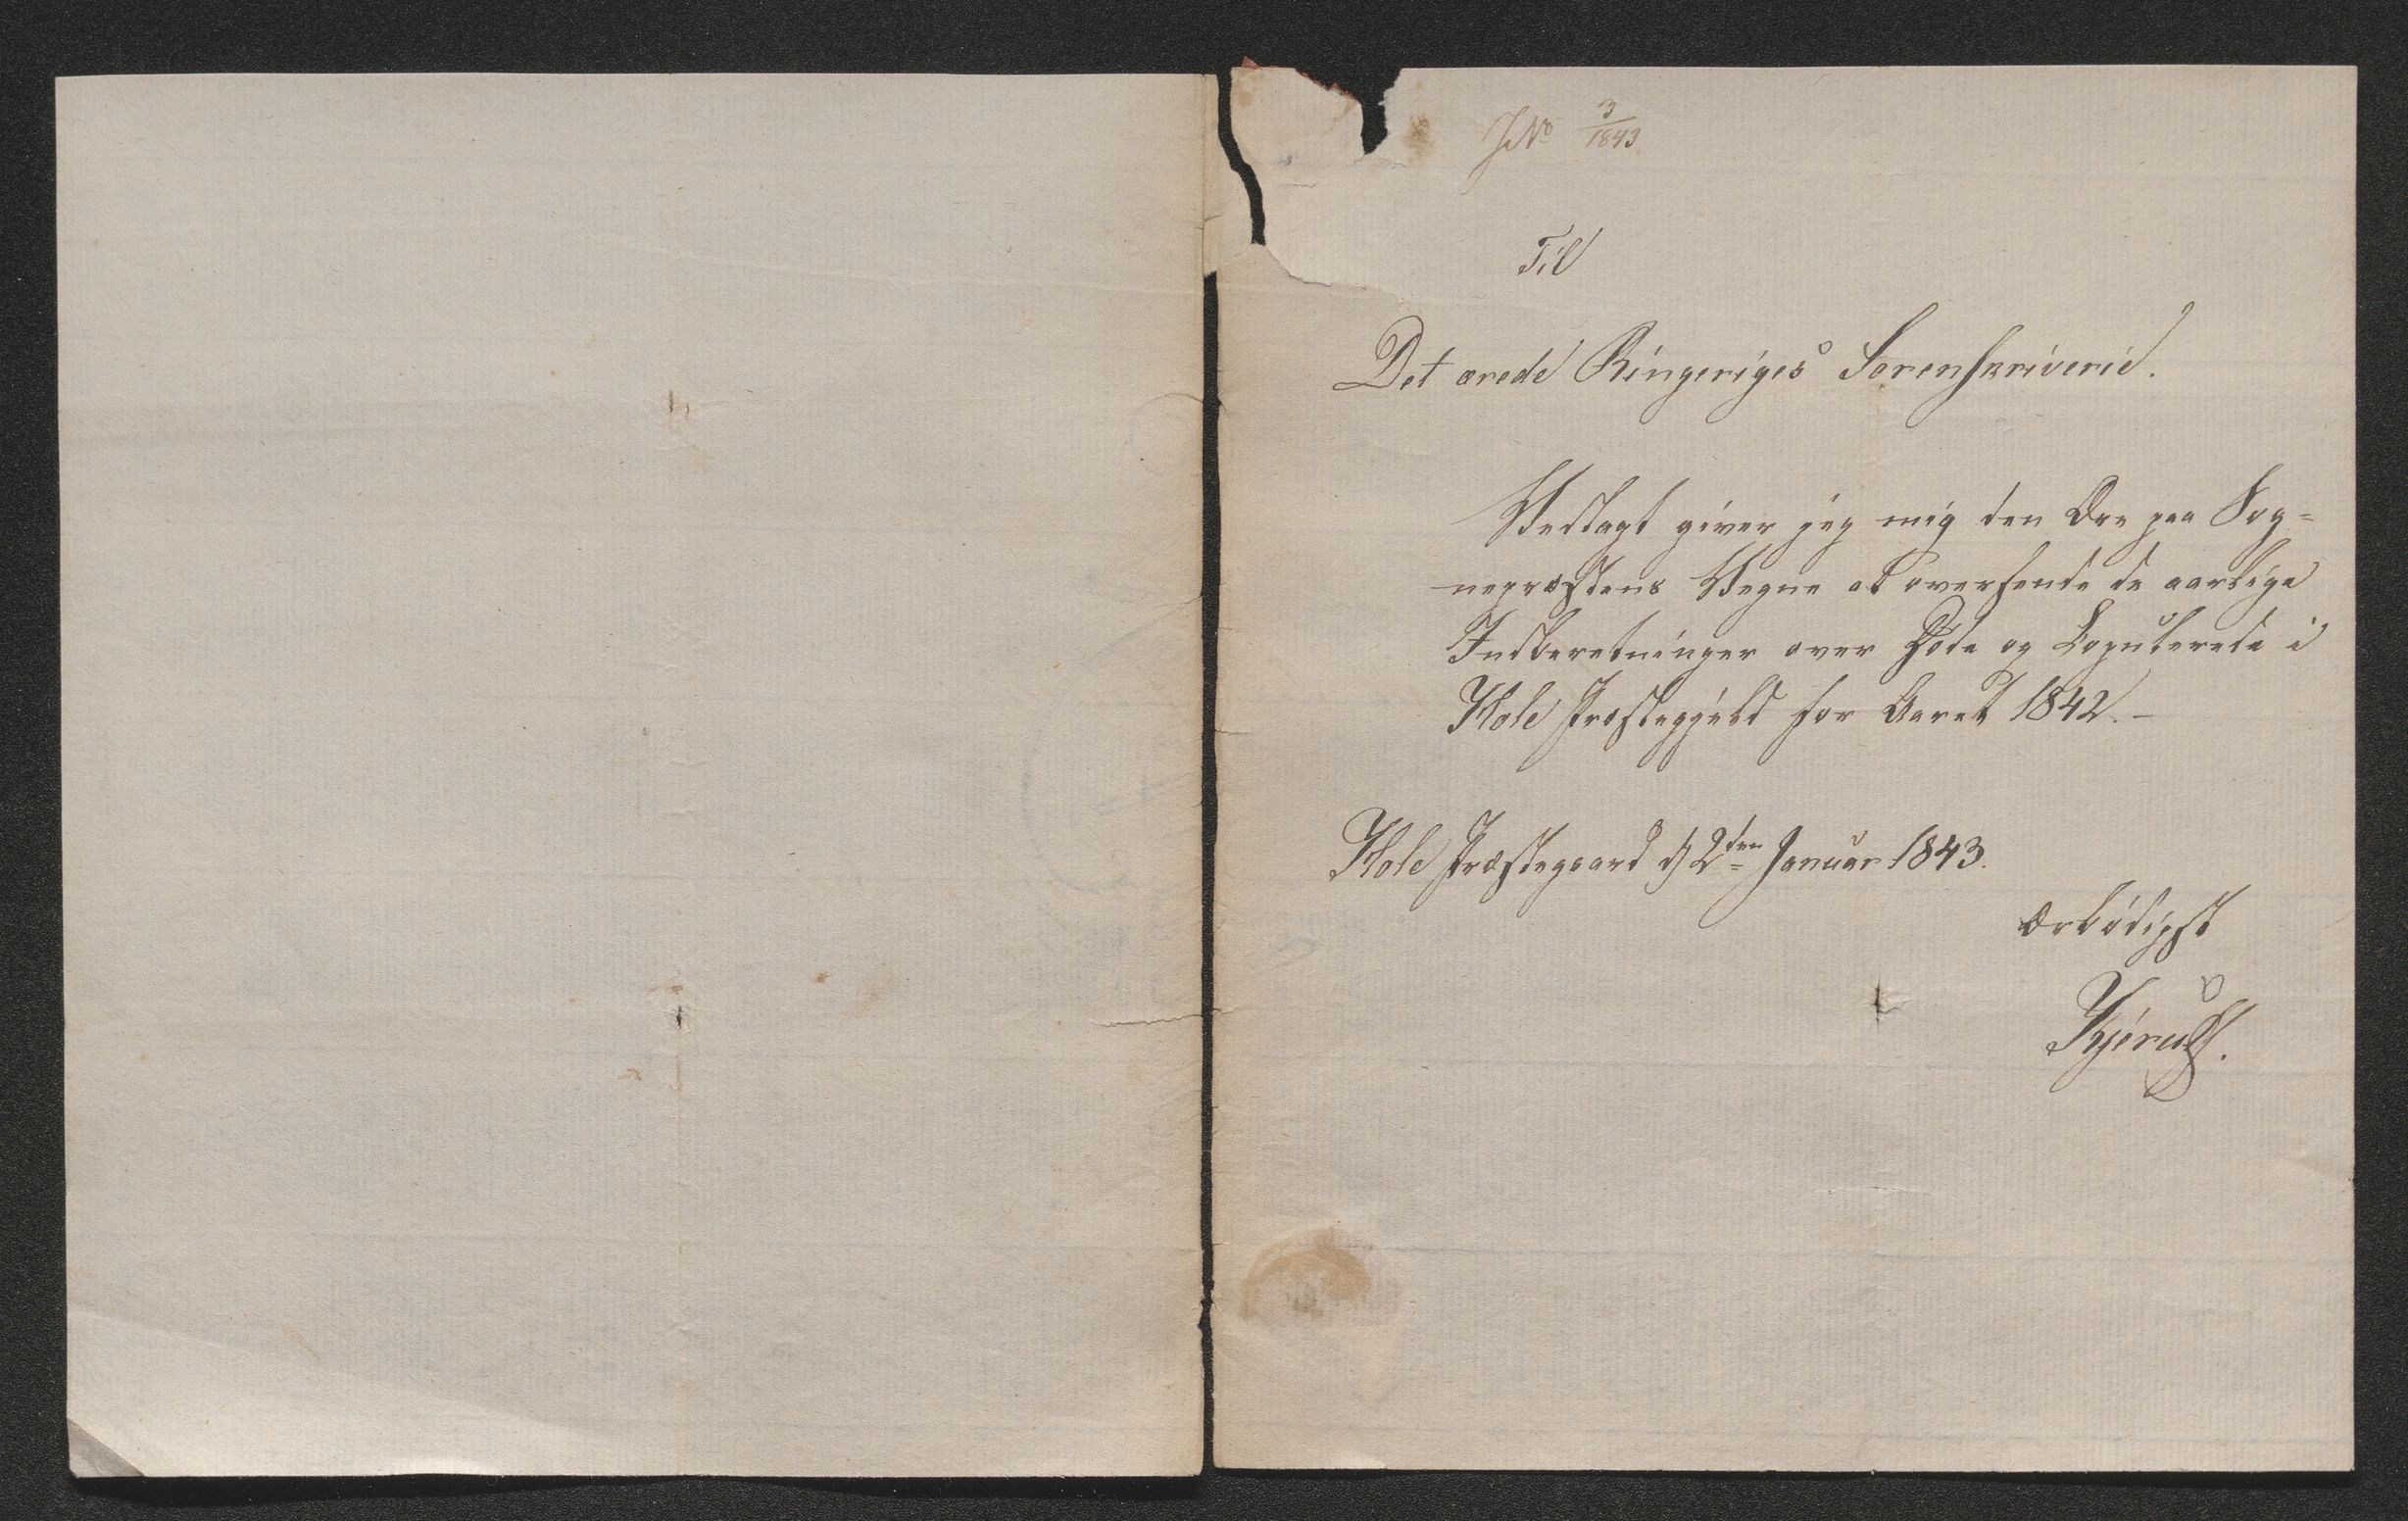 JNo 3/1843
Til
Det ærede Ringeriges Sorenskriverie.
Vedlagt giver jeg mig den Ære paa Sog=
nepræstens Vegne at oversende de aarlige
Indberetninger over Døde og Copulerede i
Hole Præstegjeld for Aaret 1842.-
Hole Præstegaard d 2den Januar 1843.
Ærbødigst